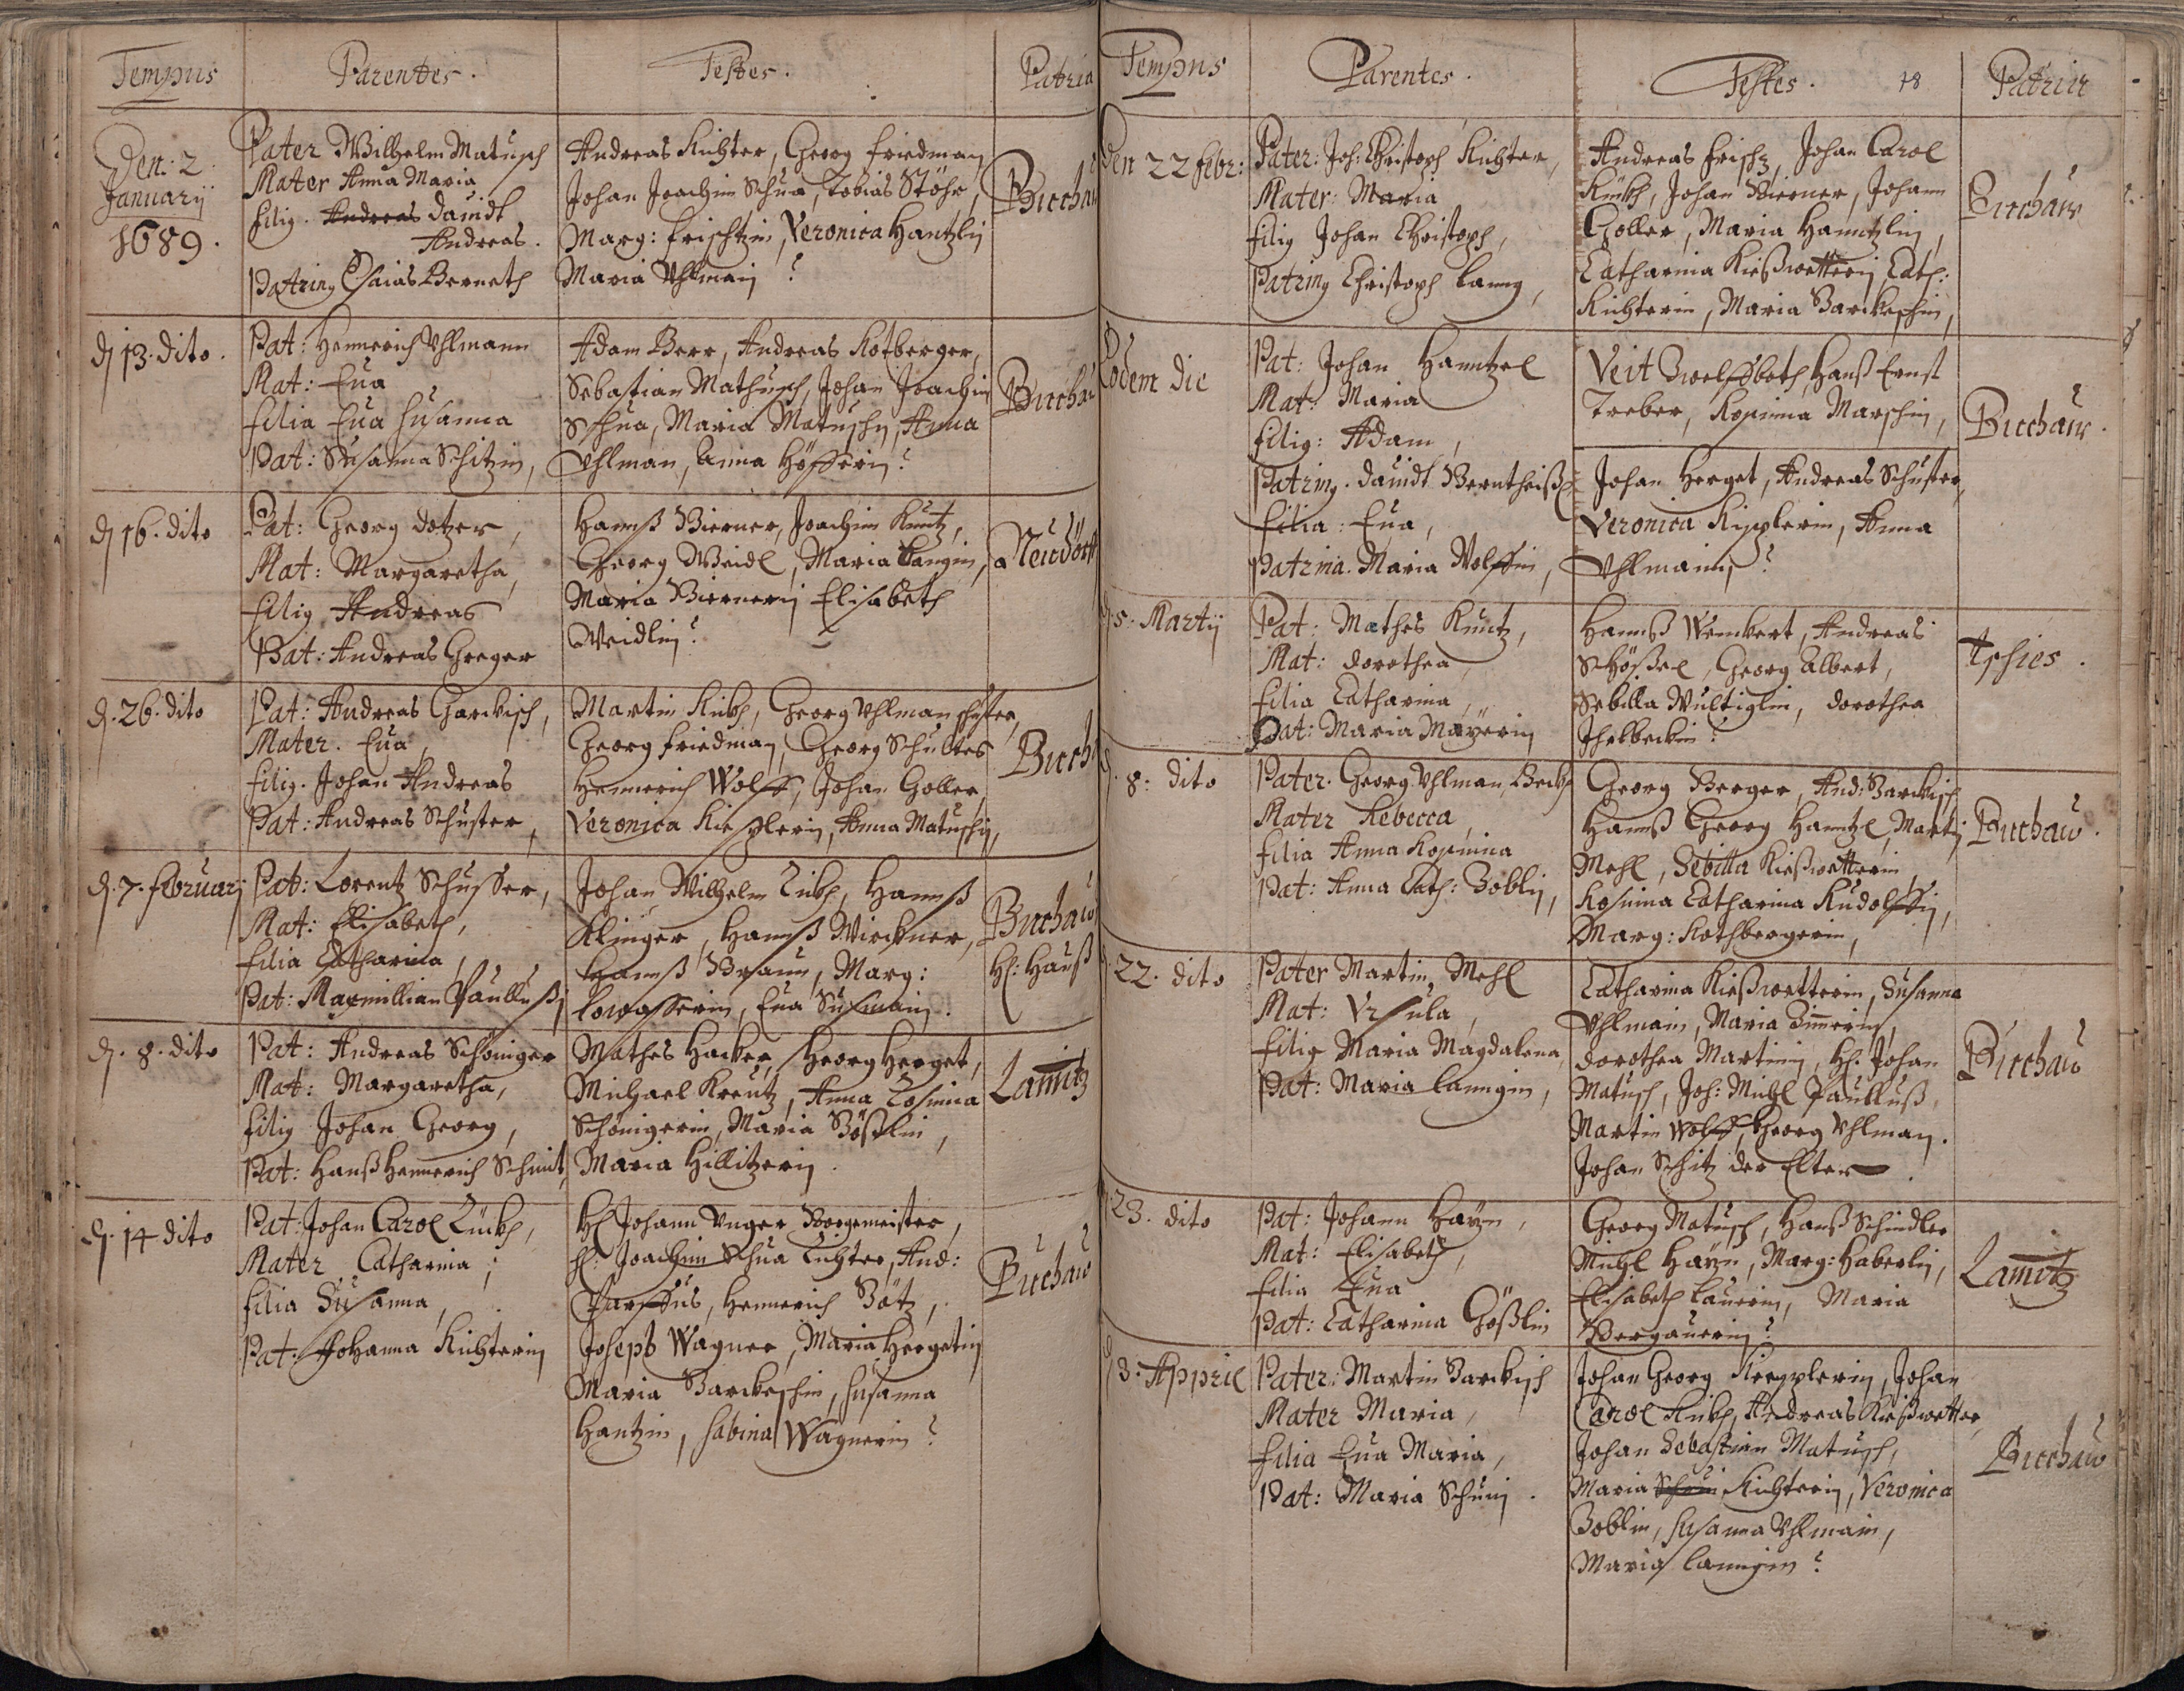 Tempus
Parentes.
Testes.
Patria
Den. 2.
Januarij
1689.
Pater Wilhelm Matusch
Mater Anna Maria
filig. Andreas Dauidt
Andreas.
Patring Esaias Berneth
Andreas Richter, Georg Friedman
Johan Joachim Schua, Tobias Stöhr,
Marg: Frischtin, Veronica Hantzlin
Maria Vhlmain
Buchau
d 13. dito.
Pat: Hennerich Vhlmann
Mat: Eua
filia Eua Susanna
Pat: Susanna Schitzin,
Adam Berr, Andreas Rotberger,
Sebastian Mathusch, Johan Joachim
Schua, Maria Matuschin, Anna
Vhlman, Anna Höfferin
Buchau
d 16. dito
Pat: Georg Dotzer,
Mat: Margaretha,
filig Andreas
Pat: Andreas Greger
Hannß Bierner, Joachim Kuntz,
Georg Weidl, Maria Langin,
Maria Biernerin Elisabeth
Weidlin
Neudorff
d. 26. dito
Pat: Andreas Garckisch,
Mater. Eua,
filig. Johan Andreas
Pat: Andreas Schuster,
Martin Kükh, Georg Vhlman Schuster,
Georg Friedman, Georg Schultes
Hennerich Wolff, Johan Goller
Veronica Kiesplerin, Anna Matuschin,
Buch
d. 7. februarij
Pat: Lorentz Schusser,
Mat: Elisabeth,
filia Catharina,
Pat: Maxmillian Paulluß
Johan Wilhelm Zükh, Hannß
Klinger, Hannß Wirckner,
Hannß Braun, Marg:
Lowasserin, Eua Sußmain.
Buchau
Hl: Hauß
d. 8. dito
Pat: Andreas Schöniger
Mat: Margaretha,
filig Johan Georg,
Pat: Hanß Hennerich Schmit,
Mathes Hacker, Georg Herget,
Michael Kreutz, Anna Rosina
Schönigerin, Maria Bößlin,
Maria Hillitzerin.
Lamitz
d. 14 dito
Pat: Johan Carol Zückh,
Mater Catharina,
filia Susanna,
Pat: Johanna Richterin
Hl Johann Vnger Borgemeister,
Hl: Joachim Schua Richter, And:
Parssus, Hennerich Götz,
Joseph Wagner, Maria Hergetin
Maria Barckeschin, Susanna
Hantzin, Sabina Wagnerin
Buchau
Tempus
Parentes.
Testes.
78
Patria
Den 22 febr:
Pater: Joh: Christoph Richter,
Mater: Maria
filig Johan Christoph,
Patring Christoph Lanng,
Andreas Frisch, Johan Carol
Kükh, Johan Bierner, Johann
Goller, Maria Hanntzlin,
Catharina Kießwetterin Cath:
Richterin, Maria Barckeschin,
Buchau
Eodem die
Pat: Johan Hanntzel
Mat: Maria
filig: Adam,
Patring. Dauidt Berntheißel
filia: Eua,
Patrina. Maria Wolffin,
Veit Zwelfboth, Hanß Ernst
Treber, Rosinna Marschin,
Johan Herget, Andreas Schuster,
Veronica Kipplerin, Anna
Vhlmainin
Buchau.
d 5. Martij
Pat: Mathes Kuntz,
Mat: Dorothea,
filia Catharina,
Pat: Maria Mayerin
Hannß Wenckert, Andreas
Schößel, Georg Albert,
Sebilla Wultiglin, Dorothea
Buchau.
d. 8: dito
Pater. Georg Vhlman Beckh
Mater Rebecca,
filia Anna Rosinna
Pat: Anna Cath: Zoblin,
Georg Berger, And: Barckisch
Hannß Georg Hanntzl, Martin
Mehl, Sebilla Kießwetterin
Rosinna Catharina Rudolffin,
Marg: Rothbergerin,
22. dito
Pater Martin Mehl
Mat: Vrsula,
filig Maria Magdalena,
Pat: Maria Lanngin,
Catharina Kießwetterin, Susanna
Vhlmain, Maria Zimerin,
Dorothea Martinin, Hl: Johan
Matusch, Joh: Michl Paulluß,
Martin Wolff, Georg Vhlman.
Johan Schitz der Elter
Buchau
23. dito
Pat: Johann Hayn,
Mat: Elisabeth,
filia Eua
Pat: Catharina Gößlin
Georg Matusch, Hanß Schindler
Michl Hayn, Marg: Haberlin,
Elisabeth Lauerin, Maria
Bergauerin
Lamitz
d 3. Appril
Pater: Martin Barckisch
Mater Maria,
filia Eua Maria,
Pat: Maria Schuin.
Johan Georg Kiepplerin, Johan
Carol Kükh, Andreas Kießwetter,
Johan Sebastian Matusch,
Maria Schuin Richterin, Veronica
Zoblin, Susanna Vhlmain,
Maria Lanngin
Buchau